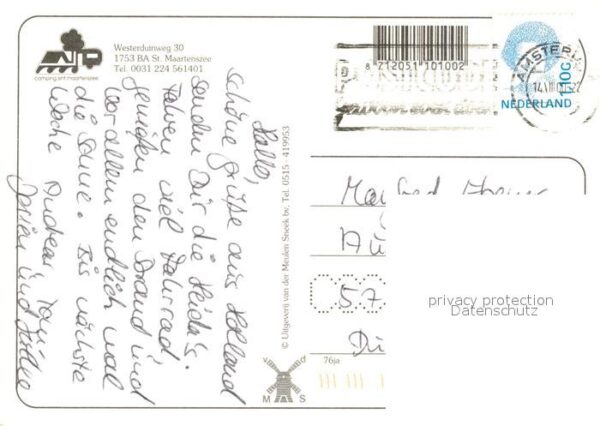 Westerduinweg 30
1753 BA St. Maartenszee
Tel. 0031 224 561401
camping sint maartenszee
8 712051 101002
AMSTERD
110c
NEDERLAND
Hallo,
schöne Grüße aus Holland
senden Dir die Heida's.
Fahren viel Fahrrad,
genießen den Strand und
vor allem endlich mal
die Sonne. Bis nächste
Woche Andrea,
und
© Uitgeverij van der Meulen Sneek bv. Tel. 0515 - 419953
Manfred
Au
57
Dü
privacy protection
Datenschutz
76ja
v d
M S